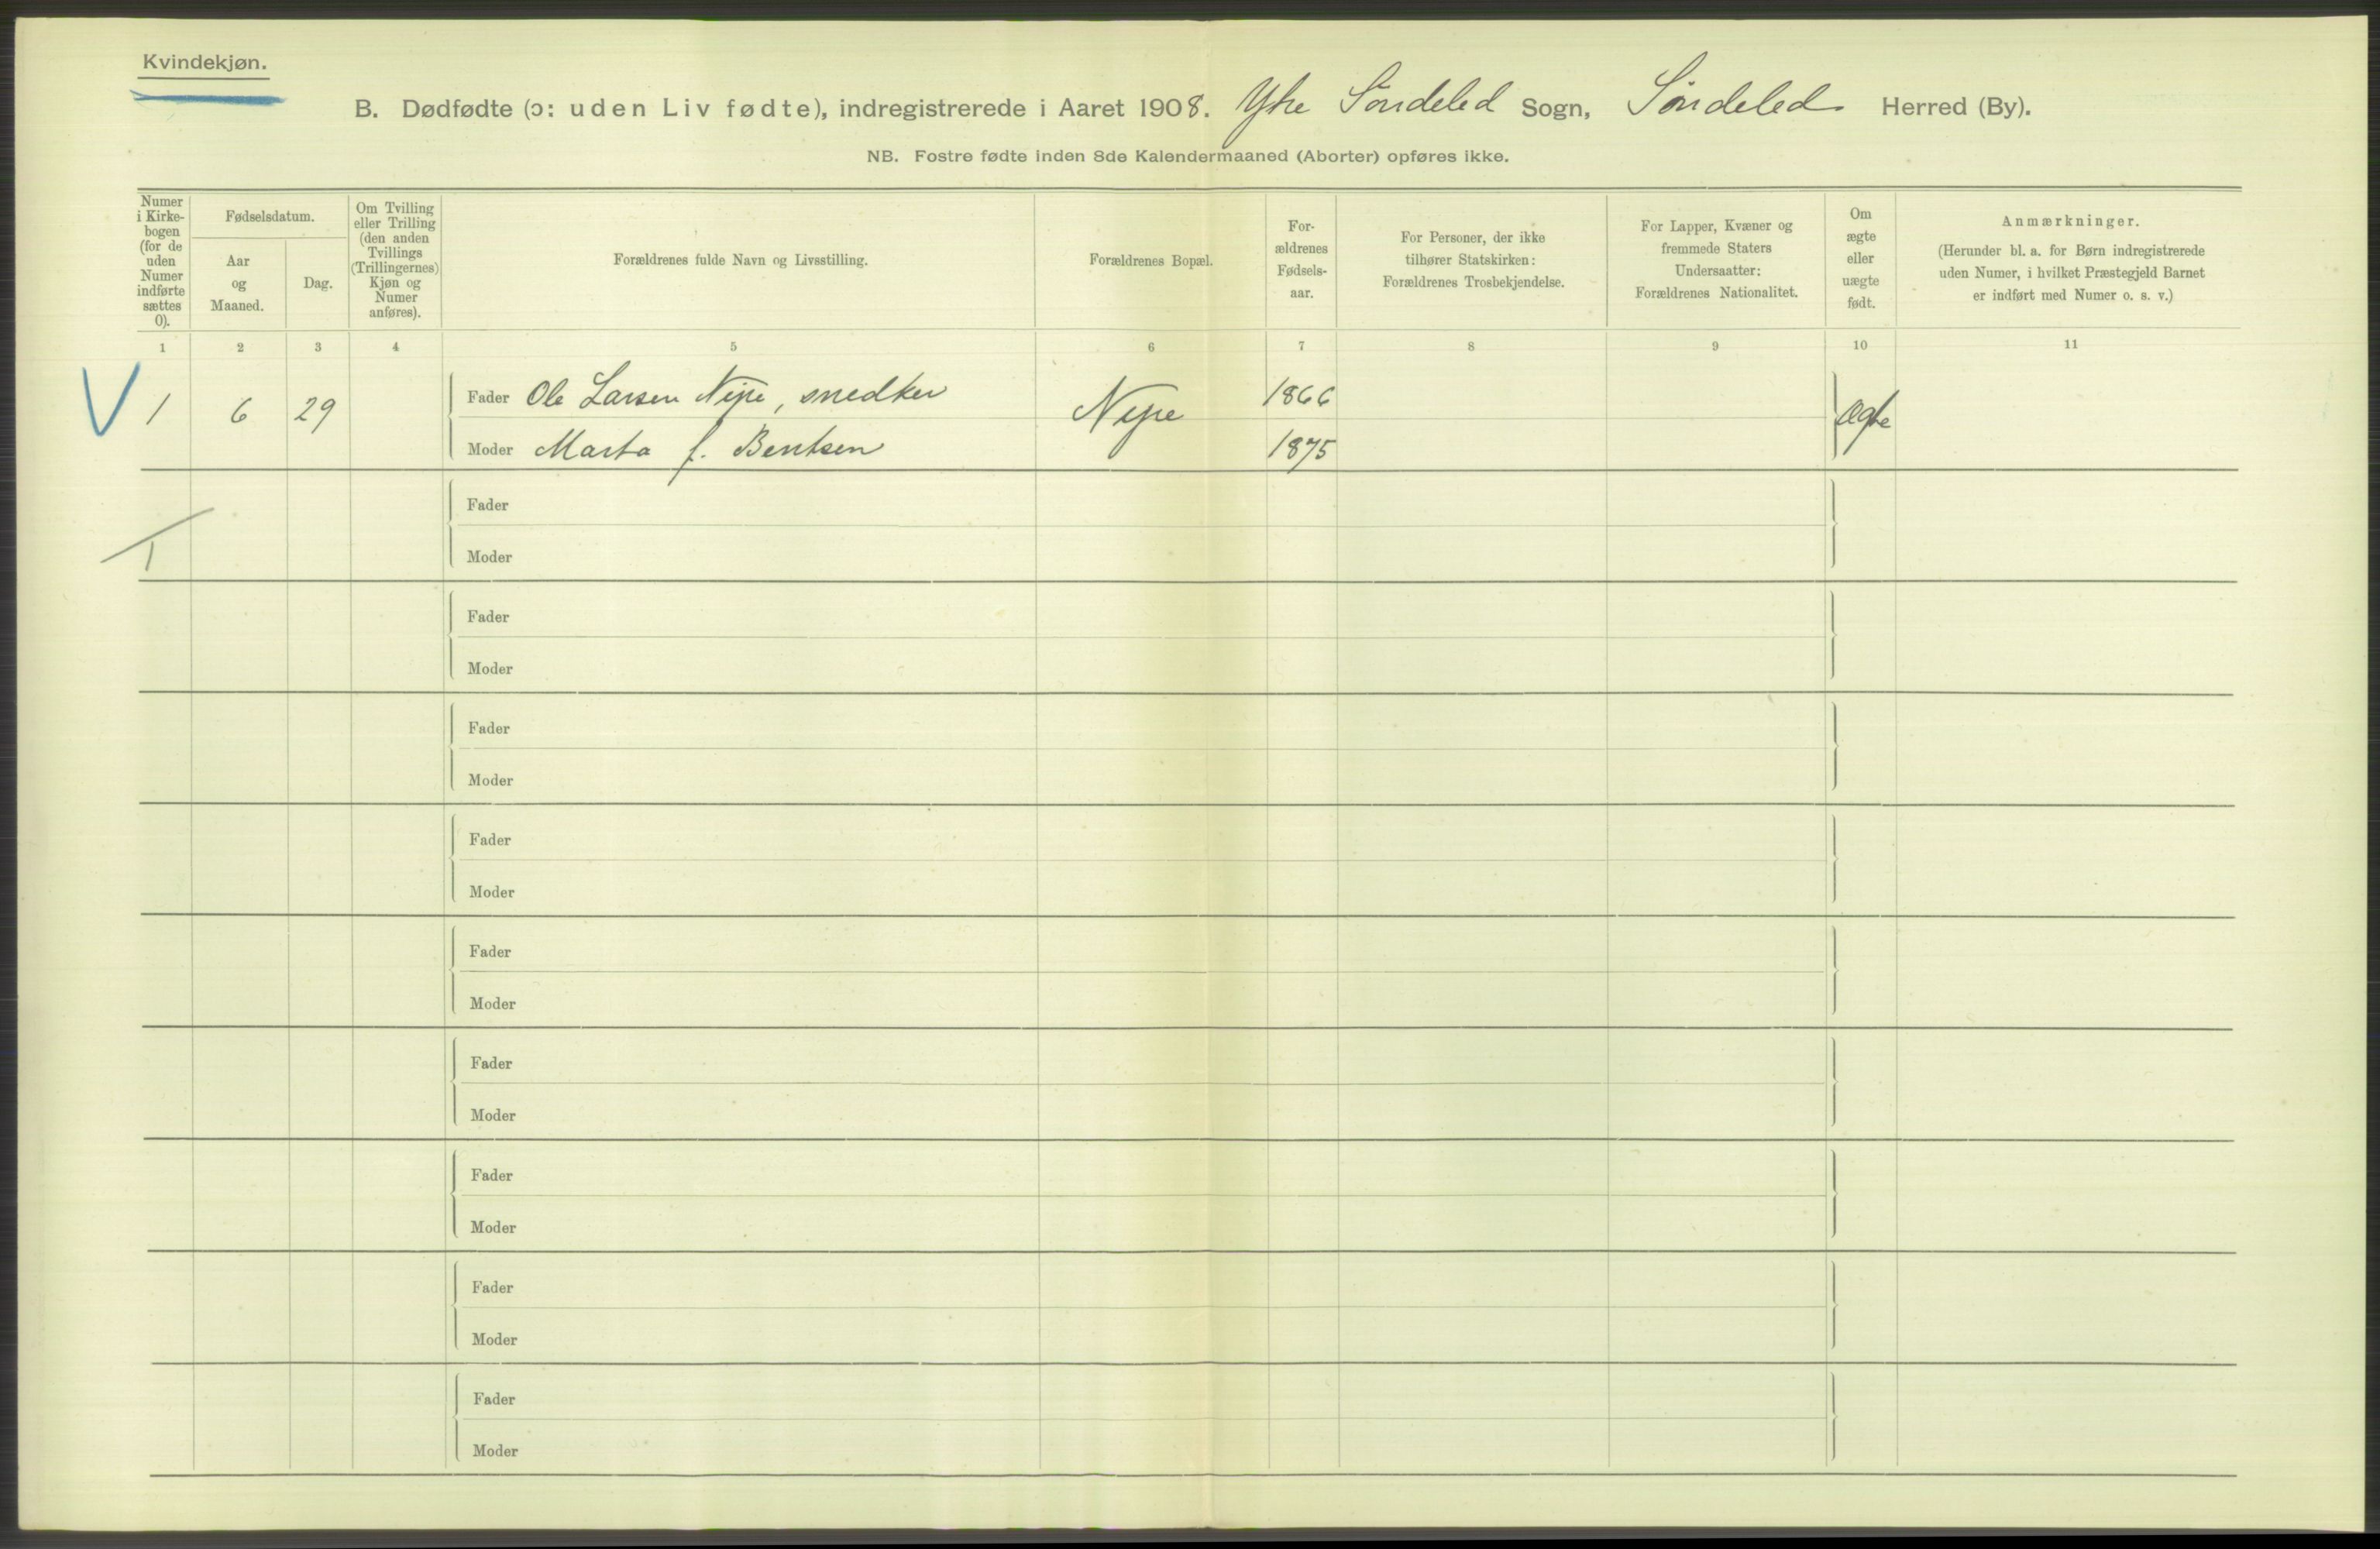 Kvindekjøn.
B. Dødfødte (ɔ: uden Liv fødte), indregistrerede i Aaret 1908. Ytre Söndeled Sogn, Söndeled Herred (By).
NB. Fostre fødte inden 8de Kalendermaaned (Aborter) opføres ikke.
Numer
i Kirke-
bogen
(for de
uden
Numer
indførte
sættes
0).
Fødselsdatum.
Aar
og
Maaned.
Dag.
Om Tvilling
eller Trilling
(den anden
Tvillings
(Trillingernes)
Kjøn og
Numer
anføres).
Forældrenes fulde Navn og Livsstilling.
Forældrenes Bopæl.
For-
ældrenes
Fødsels-
aar.
For Personer, der ikke
tilhører Statskirken:
Forældrenes Trosbekjendelse.
For Lapper, Kvæner og
fremmede Staters
Undersaatter:
Forældrenes Nationalitet.
Om
ægte
eller
uægte
født.
Anmærkninger.
(Herunder bl. a. for Børn indregistrerede
uden Numer, i hvilket Præstegjeld Barnet
er indført med Numer o. s. v.)
1 2 3 4 5 6 7 8 9 10 11
V 1 6 29 Fader Ole Larsen Nipe, snedker Nipe 1866 Ægte
Moder Marta f. Bentsen 1875
Fader
1 Moder
Fader
Moder
Fader
Moder
Fader
Moder
Fader
Moder
Fader
Moder
Fader
Moder
Fader
Moder
Fader
Moder